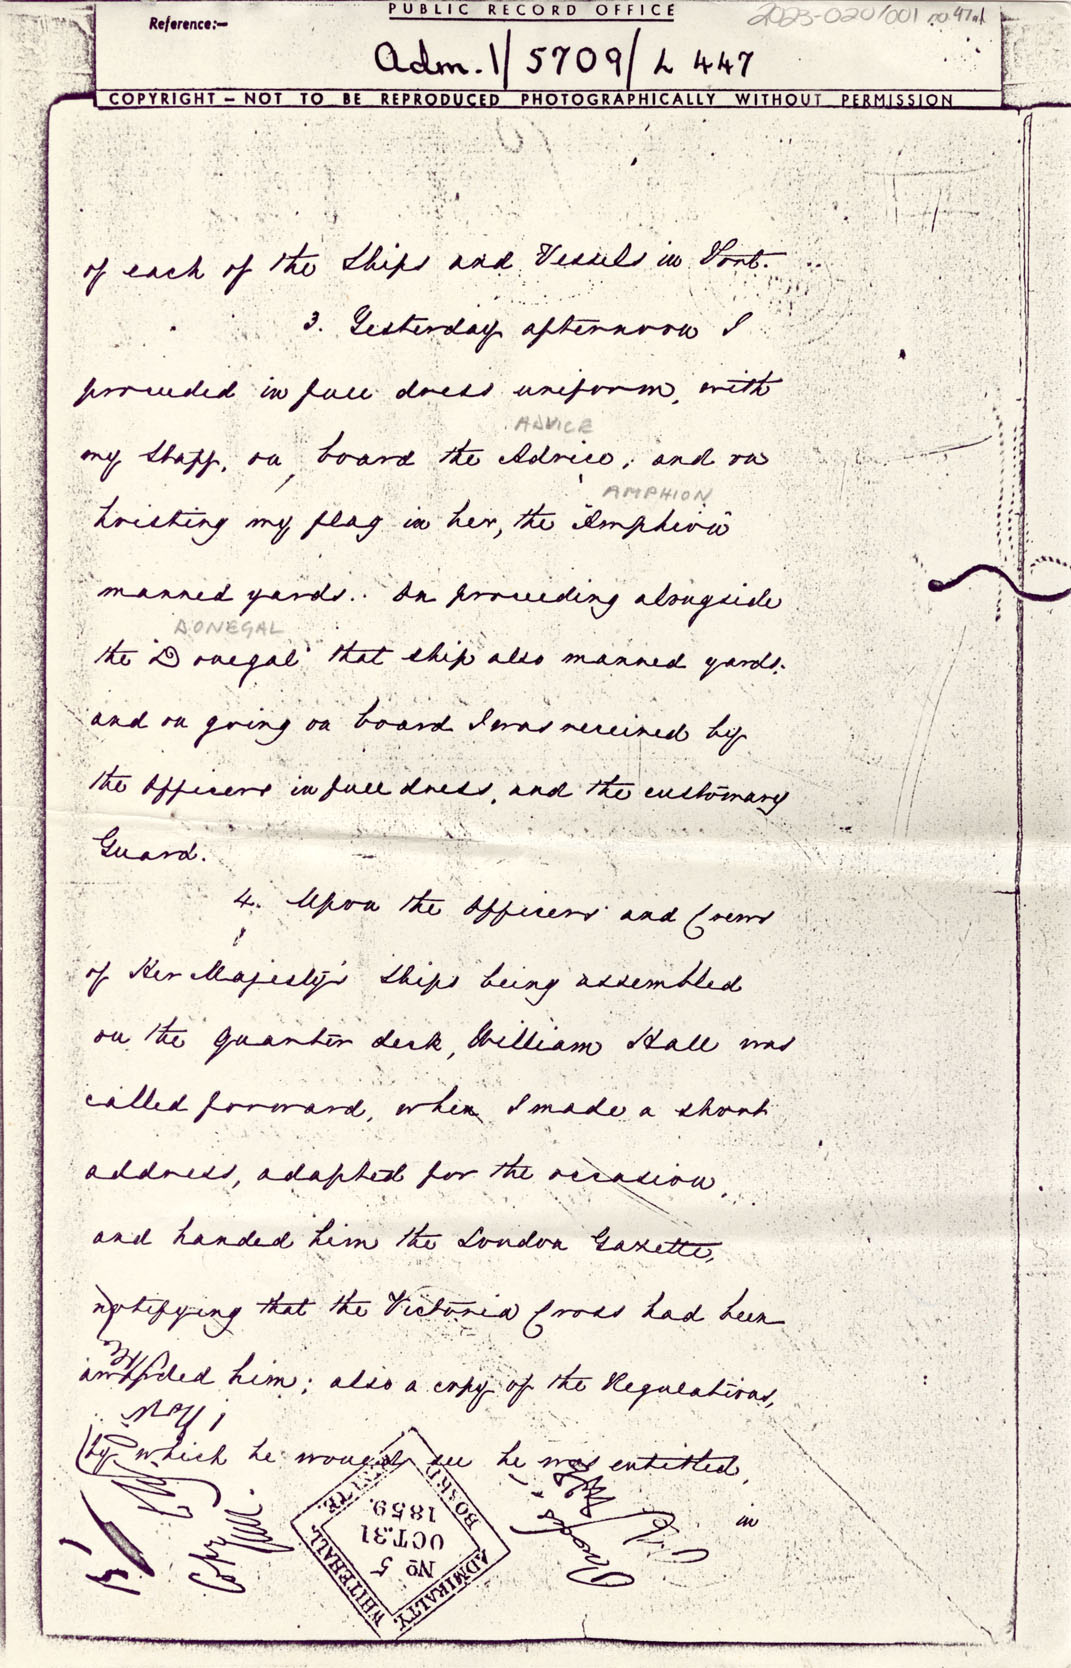 PUBLIC RECORD OFFICE
2023-020/001
Reference:-
Adm. 1/5709/L 447
COPYRIGHT - NOT TO BE REPRODUCED PHOTOGRAPHICALLY WITHOUT PERMISSION
of each of the Ships and Vessels in Port.
3. Yesterday afternoon I
proceeded in full dress uniform, with
ADVICE
my Staff, on board the Advice; and on
AMPHION
hoisting my flag in her, the "Amphion"
manned yards. On proceeding alongside
DONEGAL
the "Donegal" that ship also manned yards;
and on going on board I was received by
the Officers in full dress, and the customary
Guard.
4. Upon the Officers and Crews
of Her Majesty's Ships being assembled
on the quarter deck, William Hall was
called forward, when I made a short
address, adapted for the occasion,
and handed him the London Gazette,
notifying that the Victoria Cross had been
awarded him; also a copy of the Regulations,
by which he would see he was entitled,
in
ADMIRALTY.
WHITEHALL
No 5
OCT.31
1859.